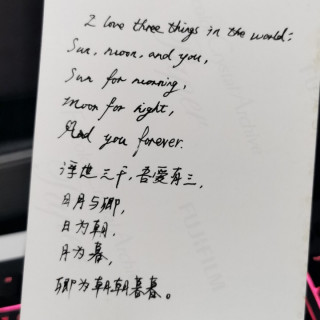 I love three things in the world:
Sun, moon, and you,
Sun for morning,
Moon for night,
And you forever.
浮世三千，吾愛有三，
日月与卿，
日为朝，
月为暮，
卿为朝朝暮暮。